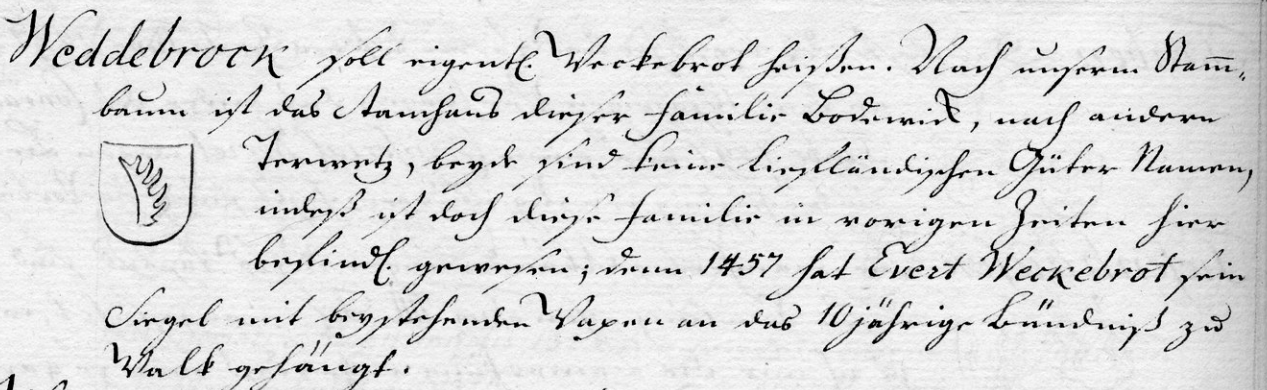 Weddebrock soll eigentl. Weckebrot heißen. Nach unserm Stam̅-
baum ist das Stamhaus dieser Familie Bodewick, nach andern
Terwetz, beyde sind keine Liefländischen Güter Namen,
indeß ist doch diese Familie in vorigen Zeiten hier
befindl. gewesen; denn 1457 hat Evert Weckebrot sein
Siegel mit beystehenden Wapen an das 10jährige Bündniß zu
Walk gehängt.